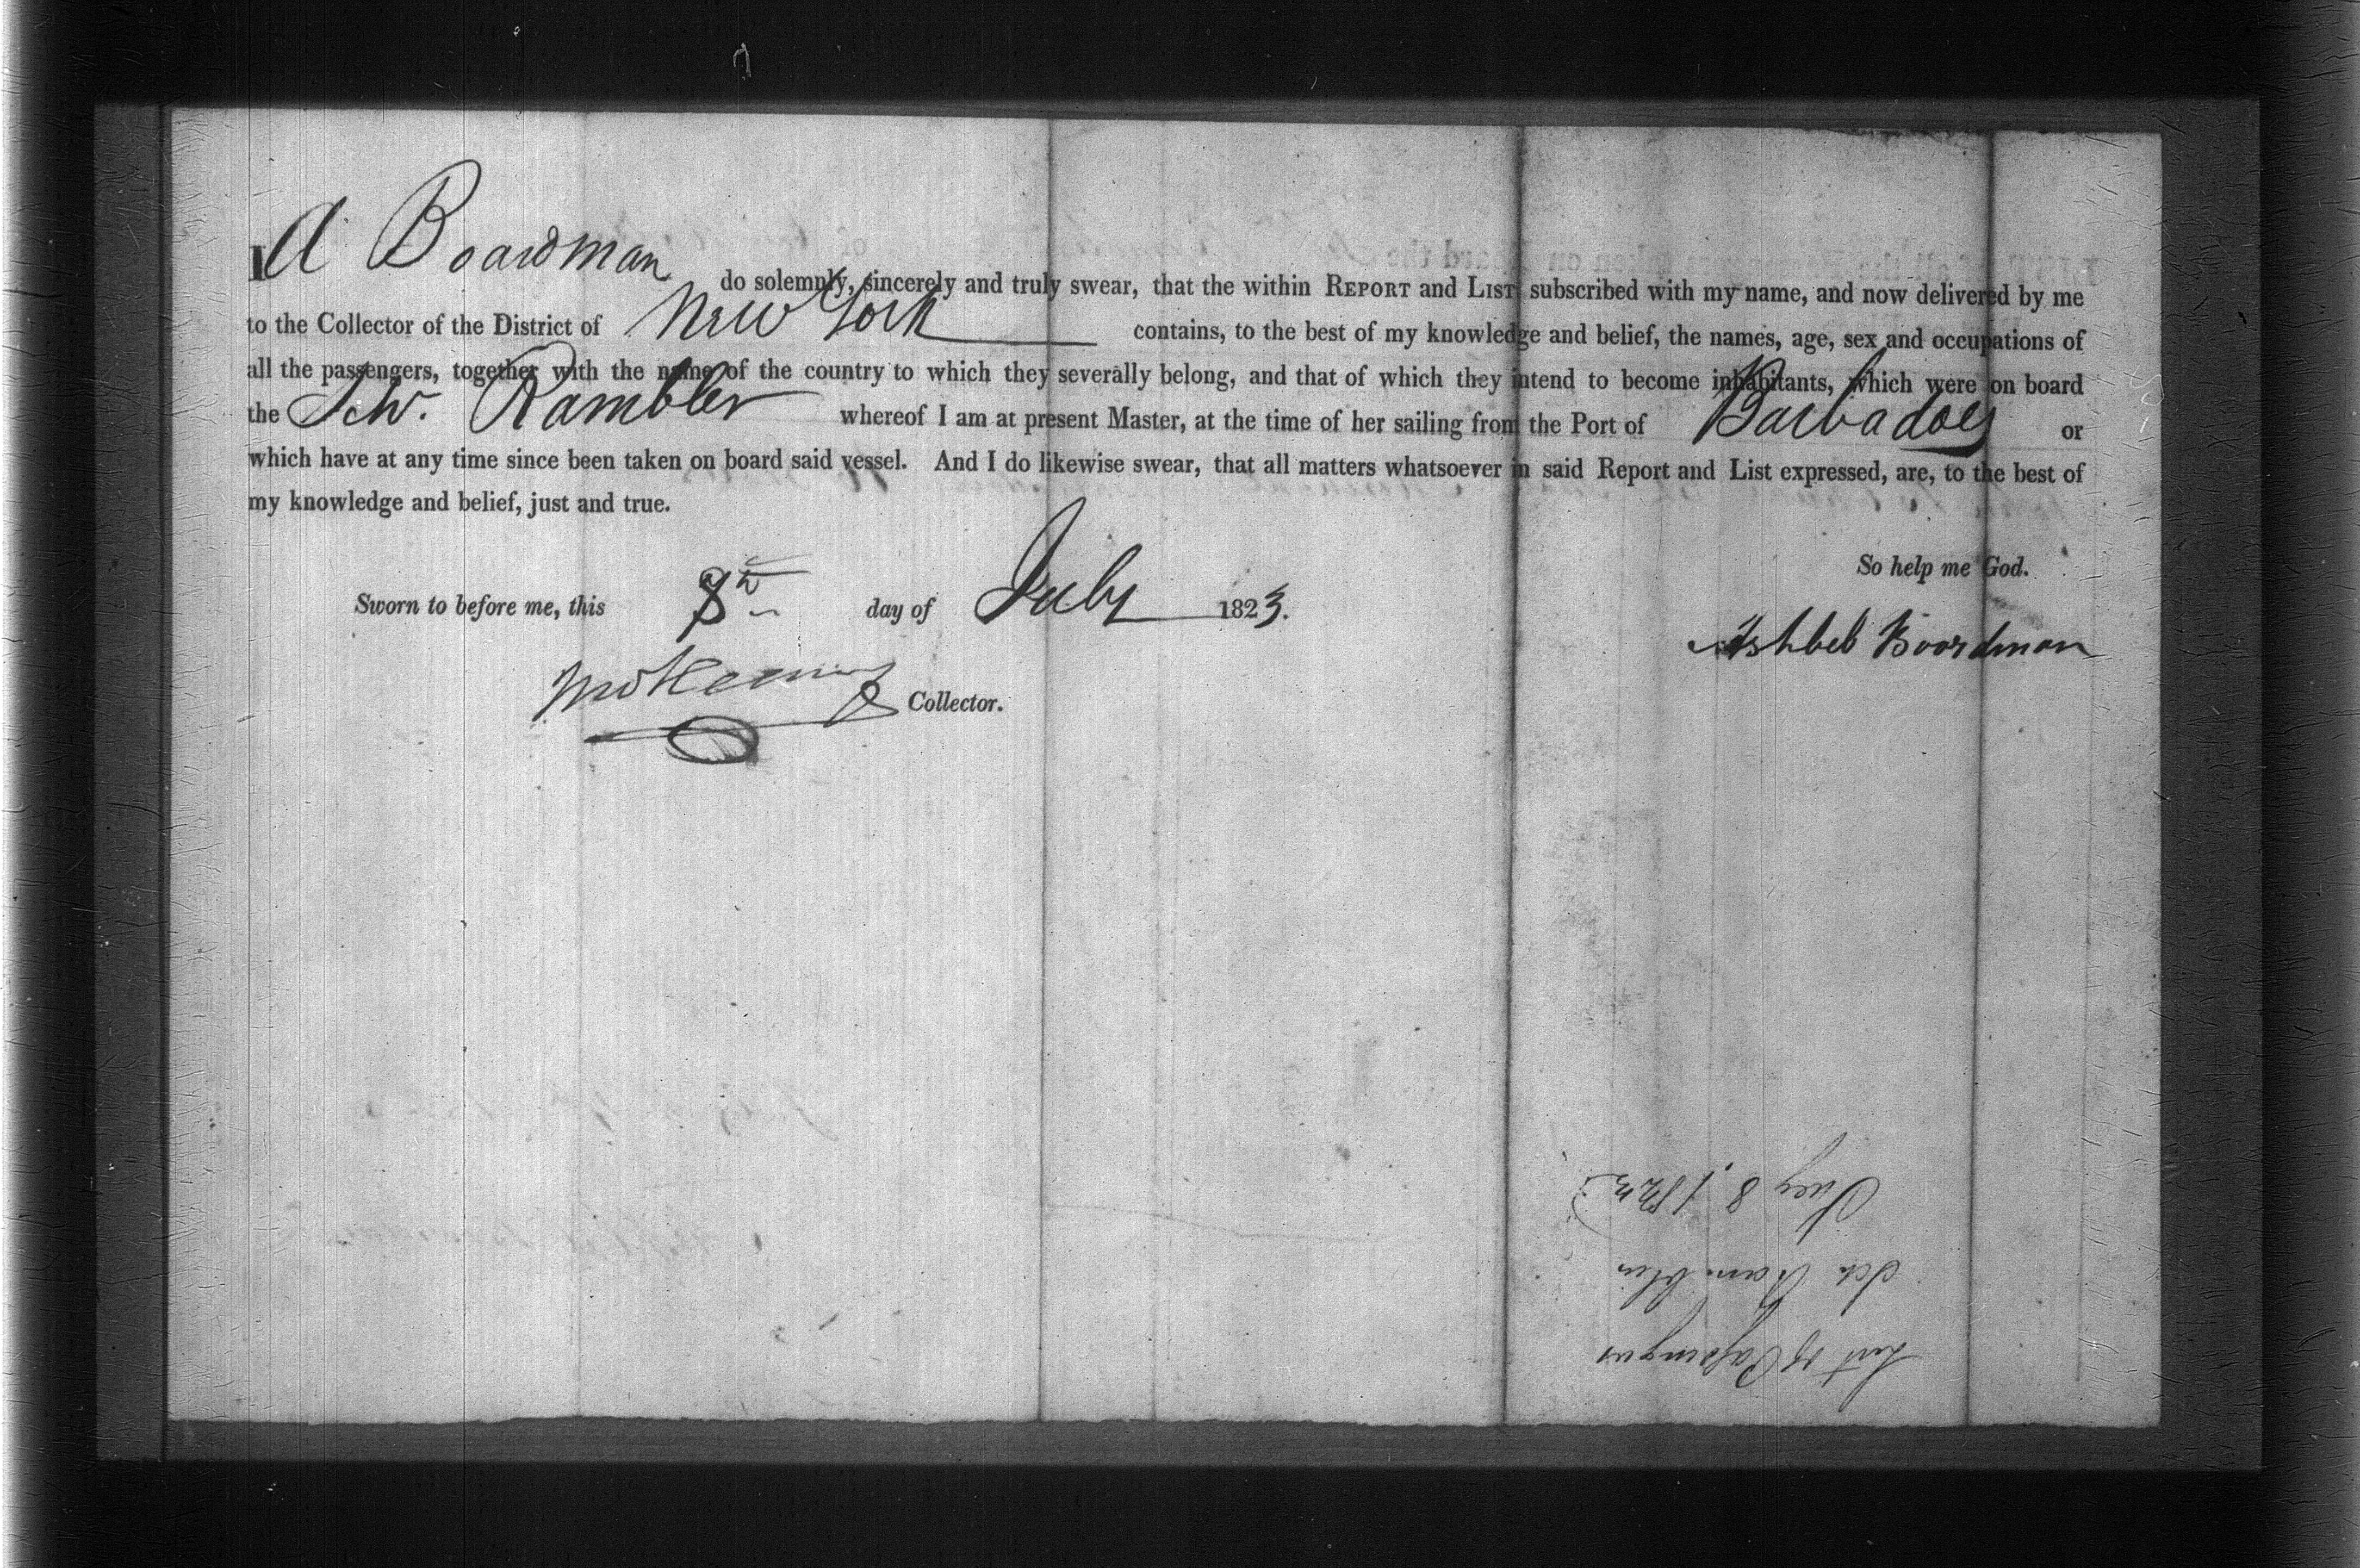 I A Boardman do solemnly, sincerely and truly swear, that the within REPORT and LIST subscribed with my name, and now delivered by me
to the Collector of the District of New York contains, to the best of my knowledge and belief, the names, age, sex and occupations of
all the passengers, together with the name of the country to which they severally belong, and that of which they intend to become inhabitants, which were on board
the Schr. Rambler whereof I am at present Master, at the time of her sailing from the Port of Barbadoes or
which have at any time since been taken on board said vessel. And I do likewise swear, that all matters whatsoever in said Report and List expressed, are, to the best of
my knowledge and belief, just and true.
So help me God.
Sworn to before me, this 8th day of July 1823.
Ashbel Boardman
Collector.
List of Passengers
Sch Rambler
July 8, 1823